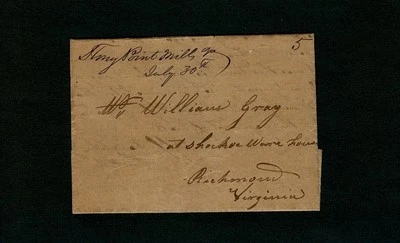 Stony Point Mills Va
July 30th
5
Mr William Gray
at Shockoe Ware house
Richmond
Virginia